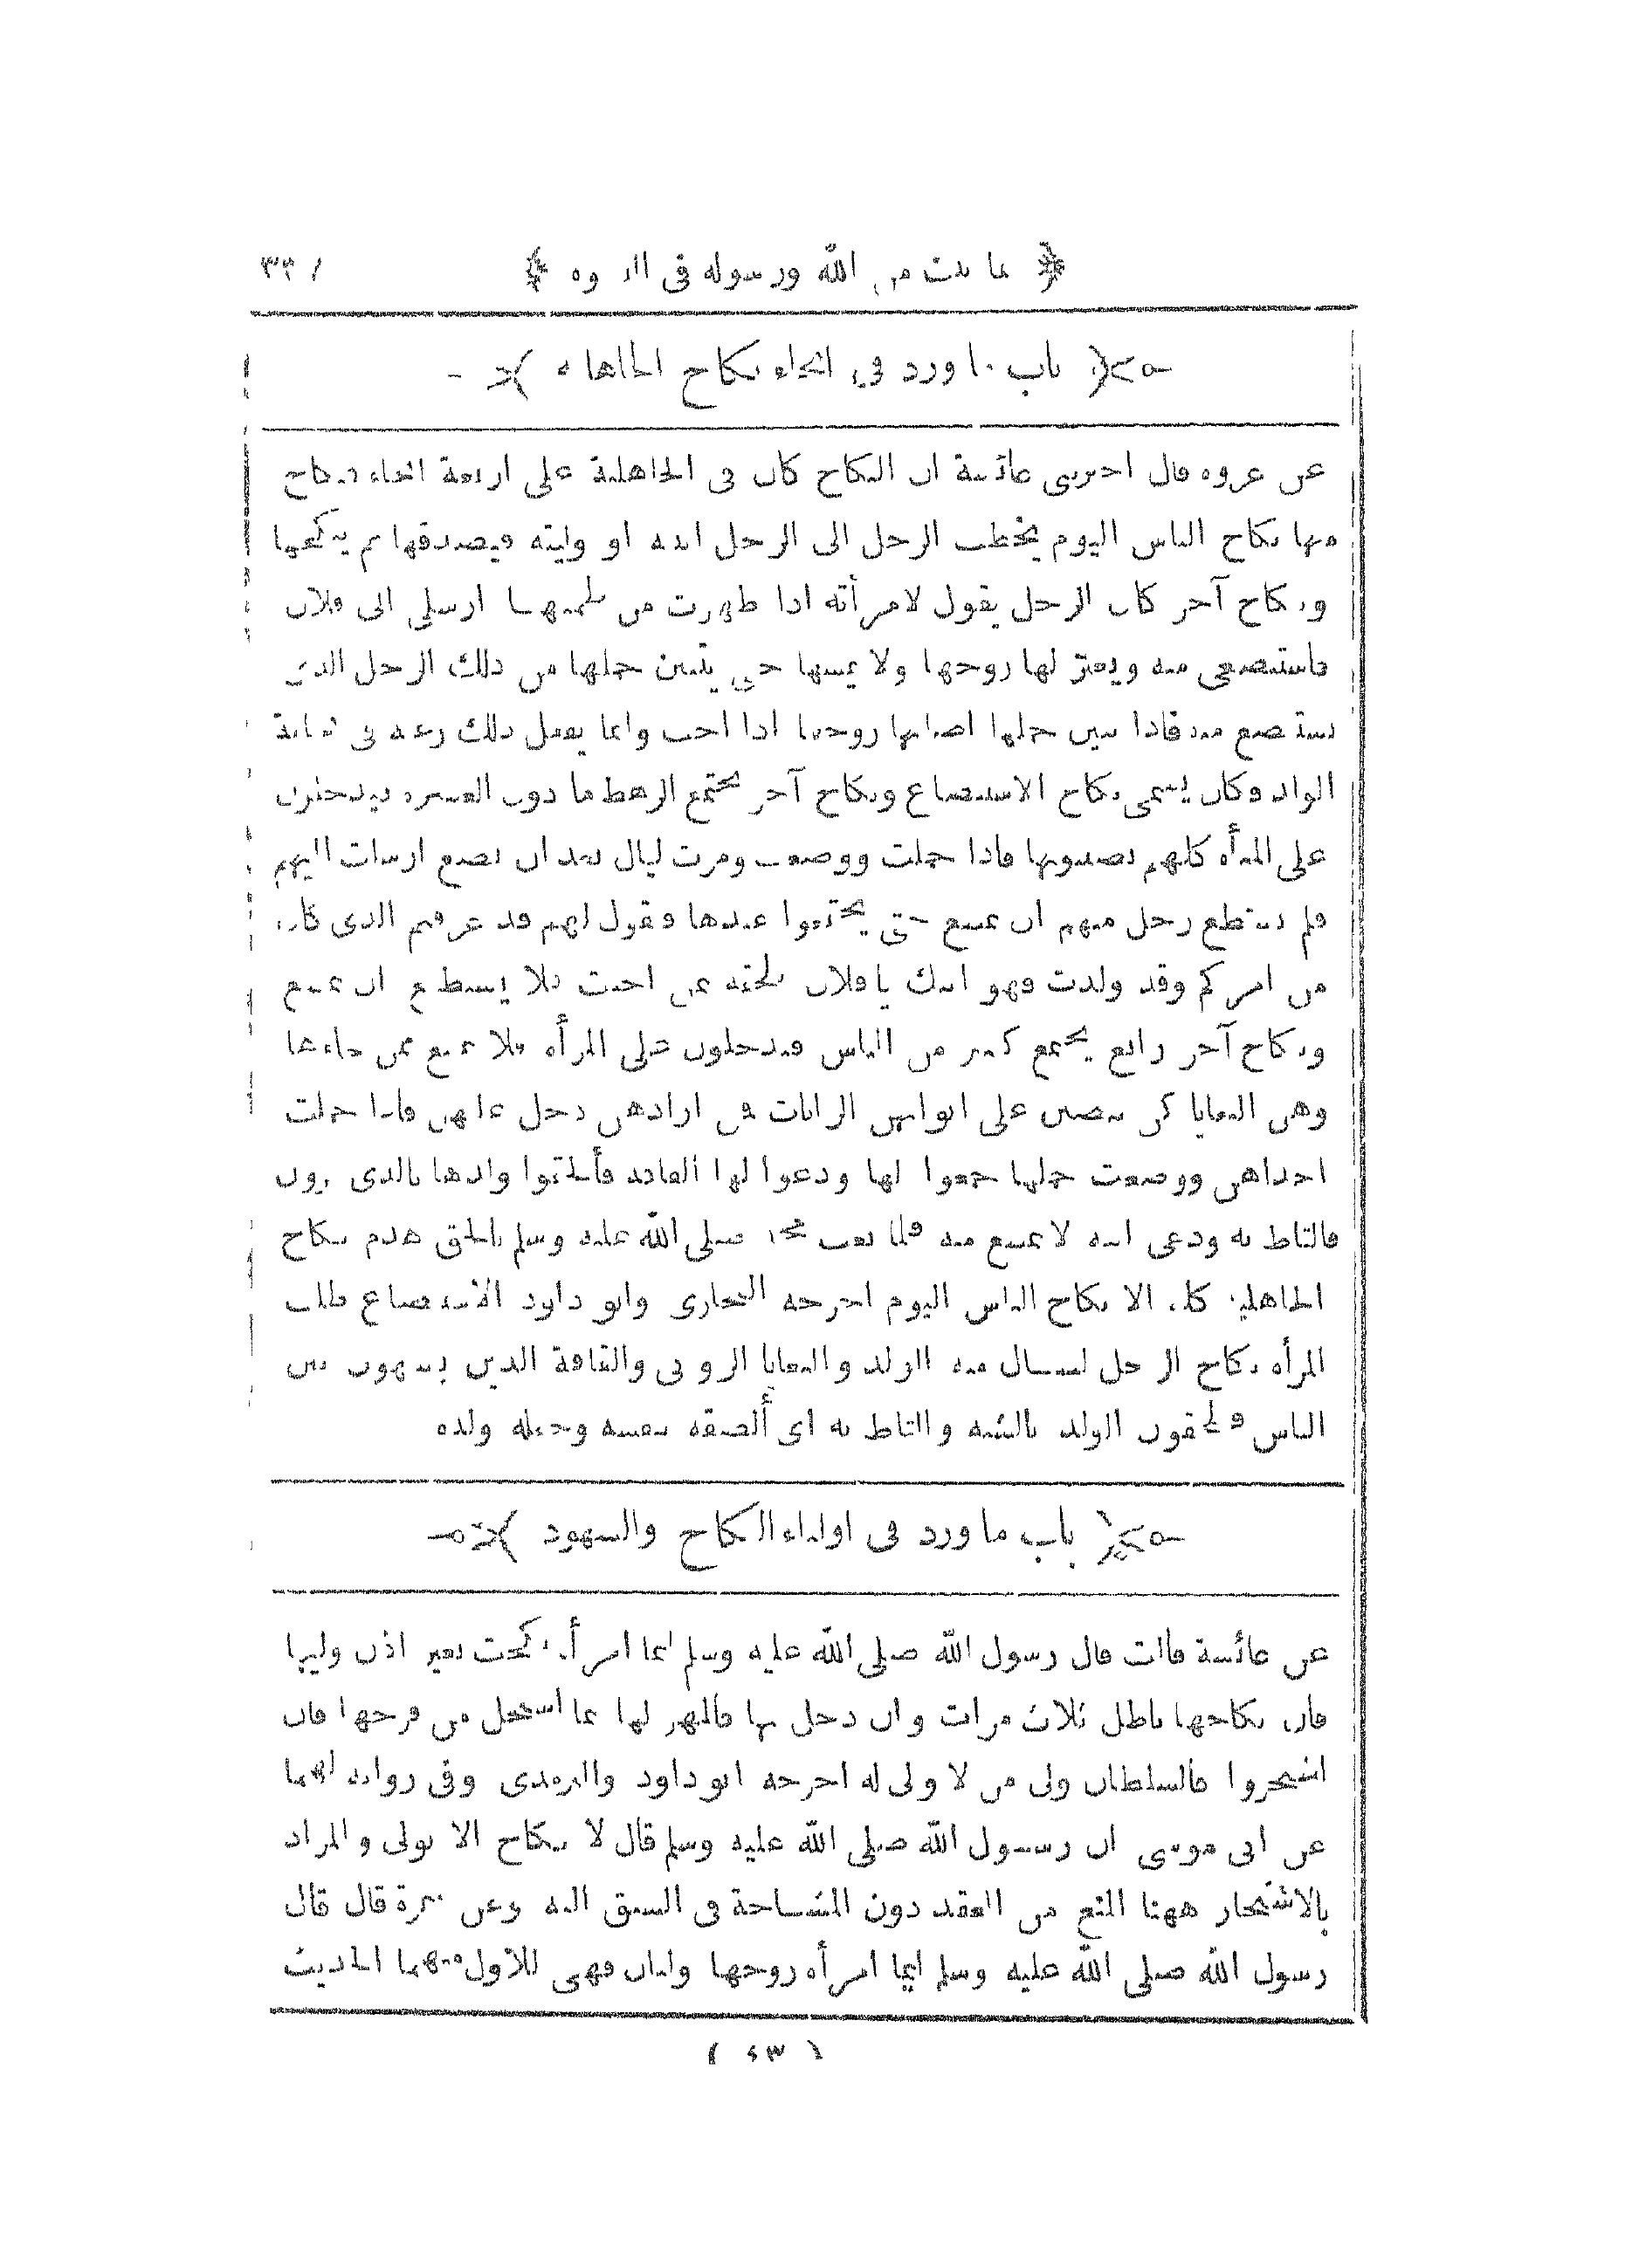 ﴿ ما ثبت من الله ورسوله فى النسوة ﴾ ٣٣٧
باب ما ورد في انحاء نكاح الجاهلية
عن عروة قال اخبرتنى عائشة ان النكاح كان فى الجاهلية على اربعة انحاء فنكاح
منها نكاح الناس اليوم يخطب الرجل الى الرجل ابنته او وليته فيصدقها ثم ينكحها
ونكاح آخر كان الرجل يقول لامرأته اذا طهرت من طمثها ارسلى الى فلان
فاستبضعى منه ويعتزلها زوجها ولا يمسها حتى يتبين حملها من ذلك الرجل الذى
تستبضع منه فاذا تبين حملها اصابها زوجها اذا احب وانما يفعل ذلك رغبة فى نجابة
الولد وكان يسمى نكاح الاستبضاع ونكاح آخر يجتمع الرهط ما دون العشرة فيدخلون
على المرأة كلهم يصيبونها فاذا حملت ووضعت ومرت ليال بعد ان تضع ارسلت اليهم
فلم يستطع رجل منهم ان يمتنع حتى يجتمعوا عندها فتقول لهم قد عرفتم الذى كان
من امركم وقد ولدت فهو ابنك يا فلان تلحقه بمن احبت فلا يستطيع ان يمتنع
ونكاح آخر رابع يجتمع كثير من الناس فيدخلون على المرأة فلا تمتنع ممن جاءها
وهى البغايا كن ينصبن على ابوابهن الرايات فمن ارادهن دخل عليهن فاذا حملت
احداهن ووضعت حملها جمعوا لها ودعوا لها القافة فألحقوا ولدها بالذى يرون
فالتاط به ودعى ابنه لا يمتنع منه فلما بعث محمد صلى الله عليه وسلم بالحق هدم نكاح
الجاهلية كله الا نكاح الناس اليوم اخرجه البخارى وابو داود الاستبضاع طلب
المرأة نكاح الرجل لتنال منه الولد والبغايا الزوانى والقافة الذين يشبهون بين
الناس فيلحقون الولد بالشبه والتاط به اى ألصقه بنفسه وجعله ولده
باب ما ورد فى اولياء النكاح والشهود
عن عائشة قالت قال رسول الله صلى الله عليه وسلم ايما امرأة نكحت بغير اذن وليها
فان نكاحها باطل ثلاث مرات وان دخل بها فالمهر لها بما استحل من فرجها فان
اشتجروا فالسلطان ولى من لا ولى له اخرجه ابو داود والترمذى وفى رواية لهما
عن ابى موسى ان رسول الله صلى الله عليه وسلم قال لا نكاح الا بولى والمراد
بالاشتجار ههنا المنع من العقد دون المشاحة فى السبق اليه وعن سمرة قال قال
رسول الله صلى الله عليه وسلم ايما امرأة زوجها وليان فهى للاول منهما الحديث
( ٤٣ )